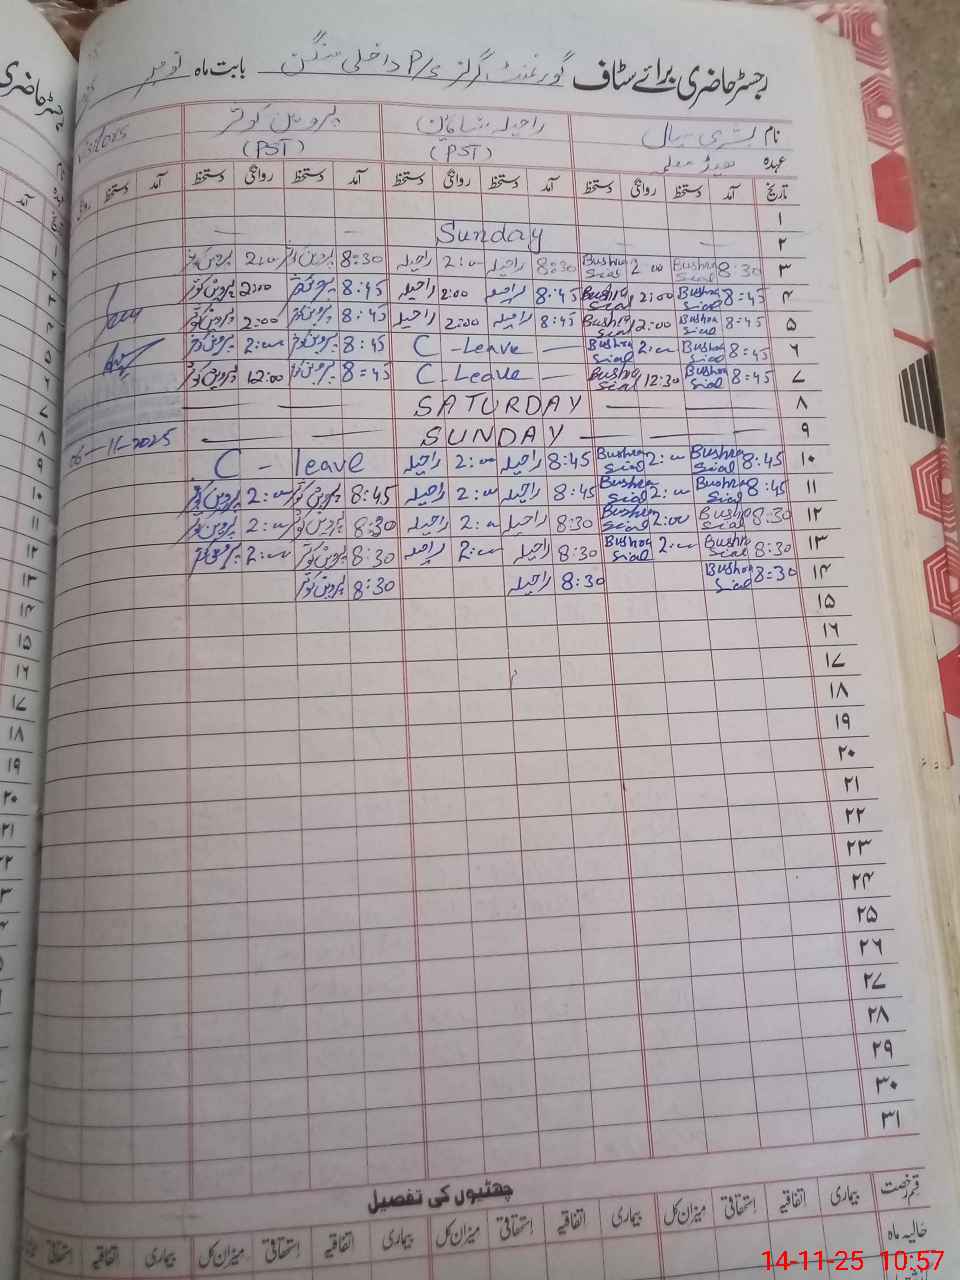 رجسٹر حاضری برائے سٹاف گورنمنٹ گرلز P/S داخلی منگن بابت ماہ نومبر
نام بشریٰ سیال راحیلہ شاہین پروین کوثر
عہدہ ہیڈ معلمہ (PST) (PST)
تاریخ آمد دستخط روانگی دستخط آمد دستخط روانگی دستخط آمد دستخط روانگی دستخط آمد دستخط
۱
۲ Sunday
۳ 8:30 Bushra Sial 2:00 Bushra Sial 8:30 راحیلہ 2:00 راحیلہ 8:30 پروین کوثر 2:00 پروین کوثر
۴ 8:45 Bushra Sial 2:00 Bushra Sial 8:45 راحیلہ 2:00 راحیلہ 8:45 پروین کوثر 2:00 پروین کوثر
۵ 8:45 Bushra Sial 2:00 Bushra Sial 8:45 راحیلہ 2:00 راحیلہ 8:45 پروین کوثر 2:00 پروین کوثر
۶ 8:45 Bushra Sial 2:00 Bushra Sial C - Leave 8:45 پروین کوثر 2:00 پروین کوثر
۷ 8:45 Bushra Sial 12:30 Bushra Sial C - Leave 8:45 پروین کوثر 12:00 پروین کوثر
۸ SATURDAY
۹ SUNDAY 06-11-2025
۱۰ 8:45 Bushra Sial 2:00 Bushra Sial 8:45 راحیلہ 2:00 راحیلہ C - leave
۱۱ 8:45 Bushra Sial 2:00 Bushra Sial 8:45 راحیلہ 2:00 راحیلہ 8:45 پروین کوثر 2:00 پروین کوثر
۱۲ 8:30 Bushra Sial 2:00 Bushra Sial 8:30 راحیلہ 2:00 راحیلہ 8:30 پروین کوثر 2:00 پروین کوثر
۱۳ 8:30 Bushra Sial 2:00 Bushra Sial 8:30 راحیلہ 2:00 راحیلہ 8:30 پروین کوثر 2:00 پروین کوثر
۱۴ 8:30 Bushra Sial 8:30 راحیلہ 8:30 پروین کوثر
۱۵
۱۶
۱۷
۱۸
۱۹
۲۰
۲۱
۲۲
۲۳
۲۴
۲۵
۲۶
۲۷
۲۸
۲۹
۳۰
۳۱
چھٹیوں کی تفصیل
قسم رخصت بیماری اتفاقیہ استحقاقی میزان کل بیماری اتفاقیہ استحقاقی میزان کل بیماری اتفاقیہ استحقاقی میزان کل بیماری اتفاقیہ استحقاقی
حالیہ ماہ
14-11-25 10:57